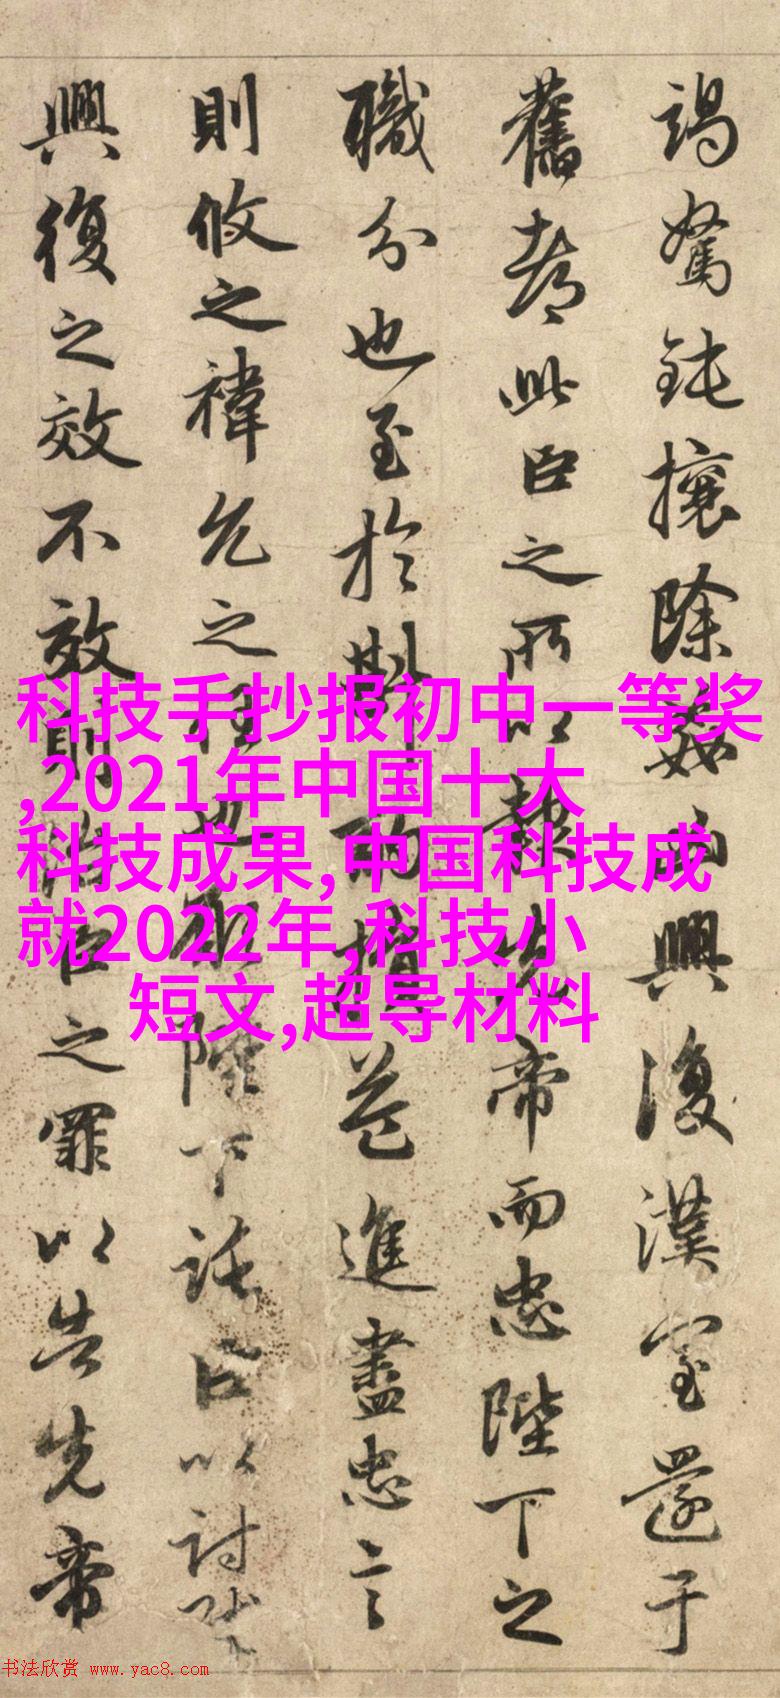 竭駑鈍攘除姦凶興復漢室還于
舊都此臣之所以報先帝而忠陛下之
職分也至於斟酌損益進盡忠言
則攸之禕允之任也願陛下託臣以討賊
興復之效不效則治臣之罪以告先帝
科技手抄报初中一等奖
,2021年中国十大
科技成果,中国科技成
就2022年,科技小
短文,超导材料
书法欣赏 www.yac8.com